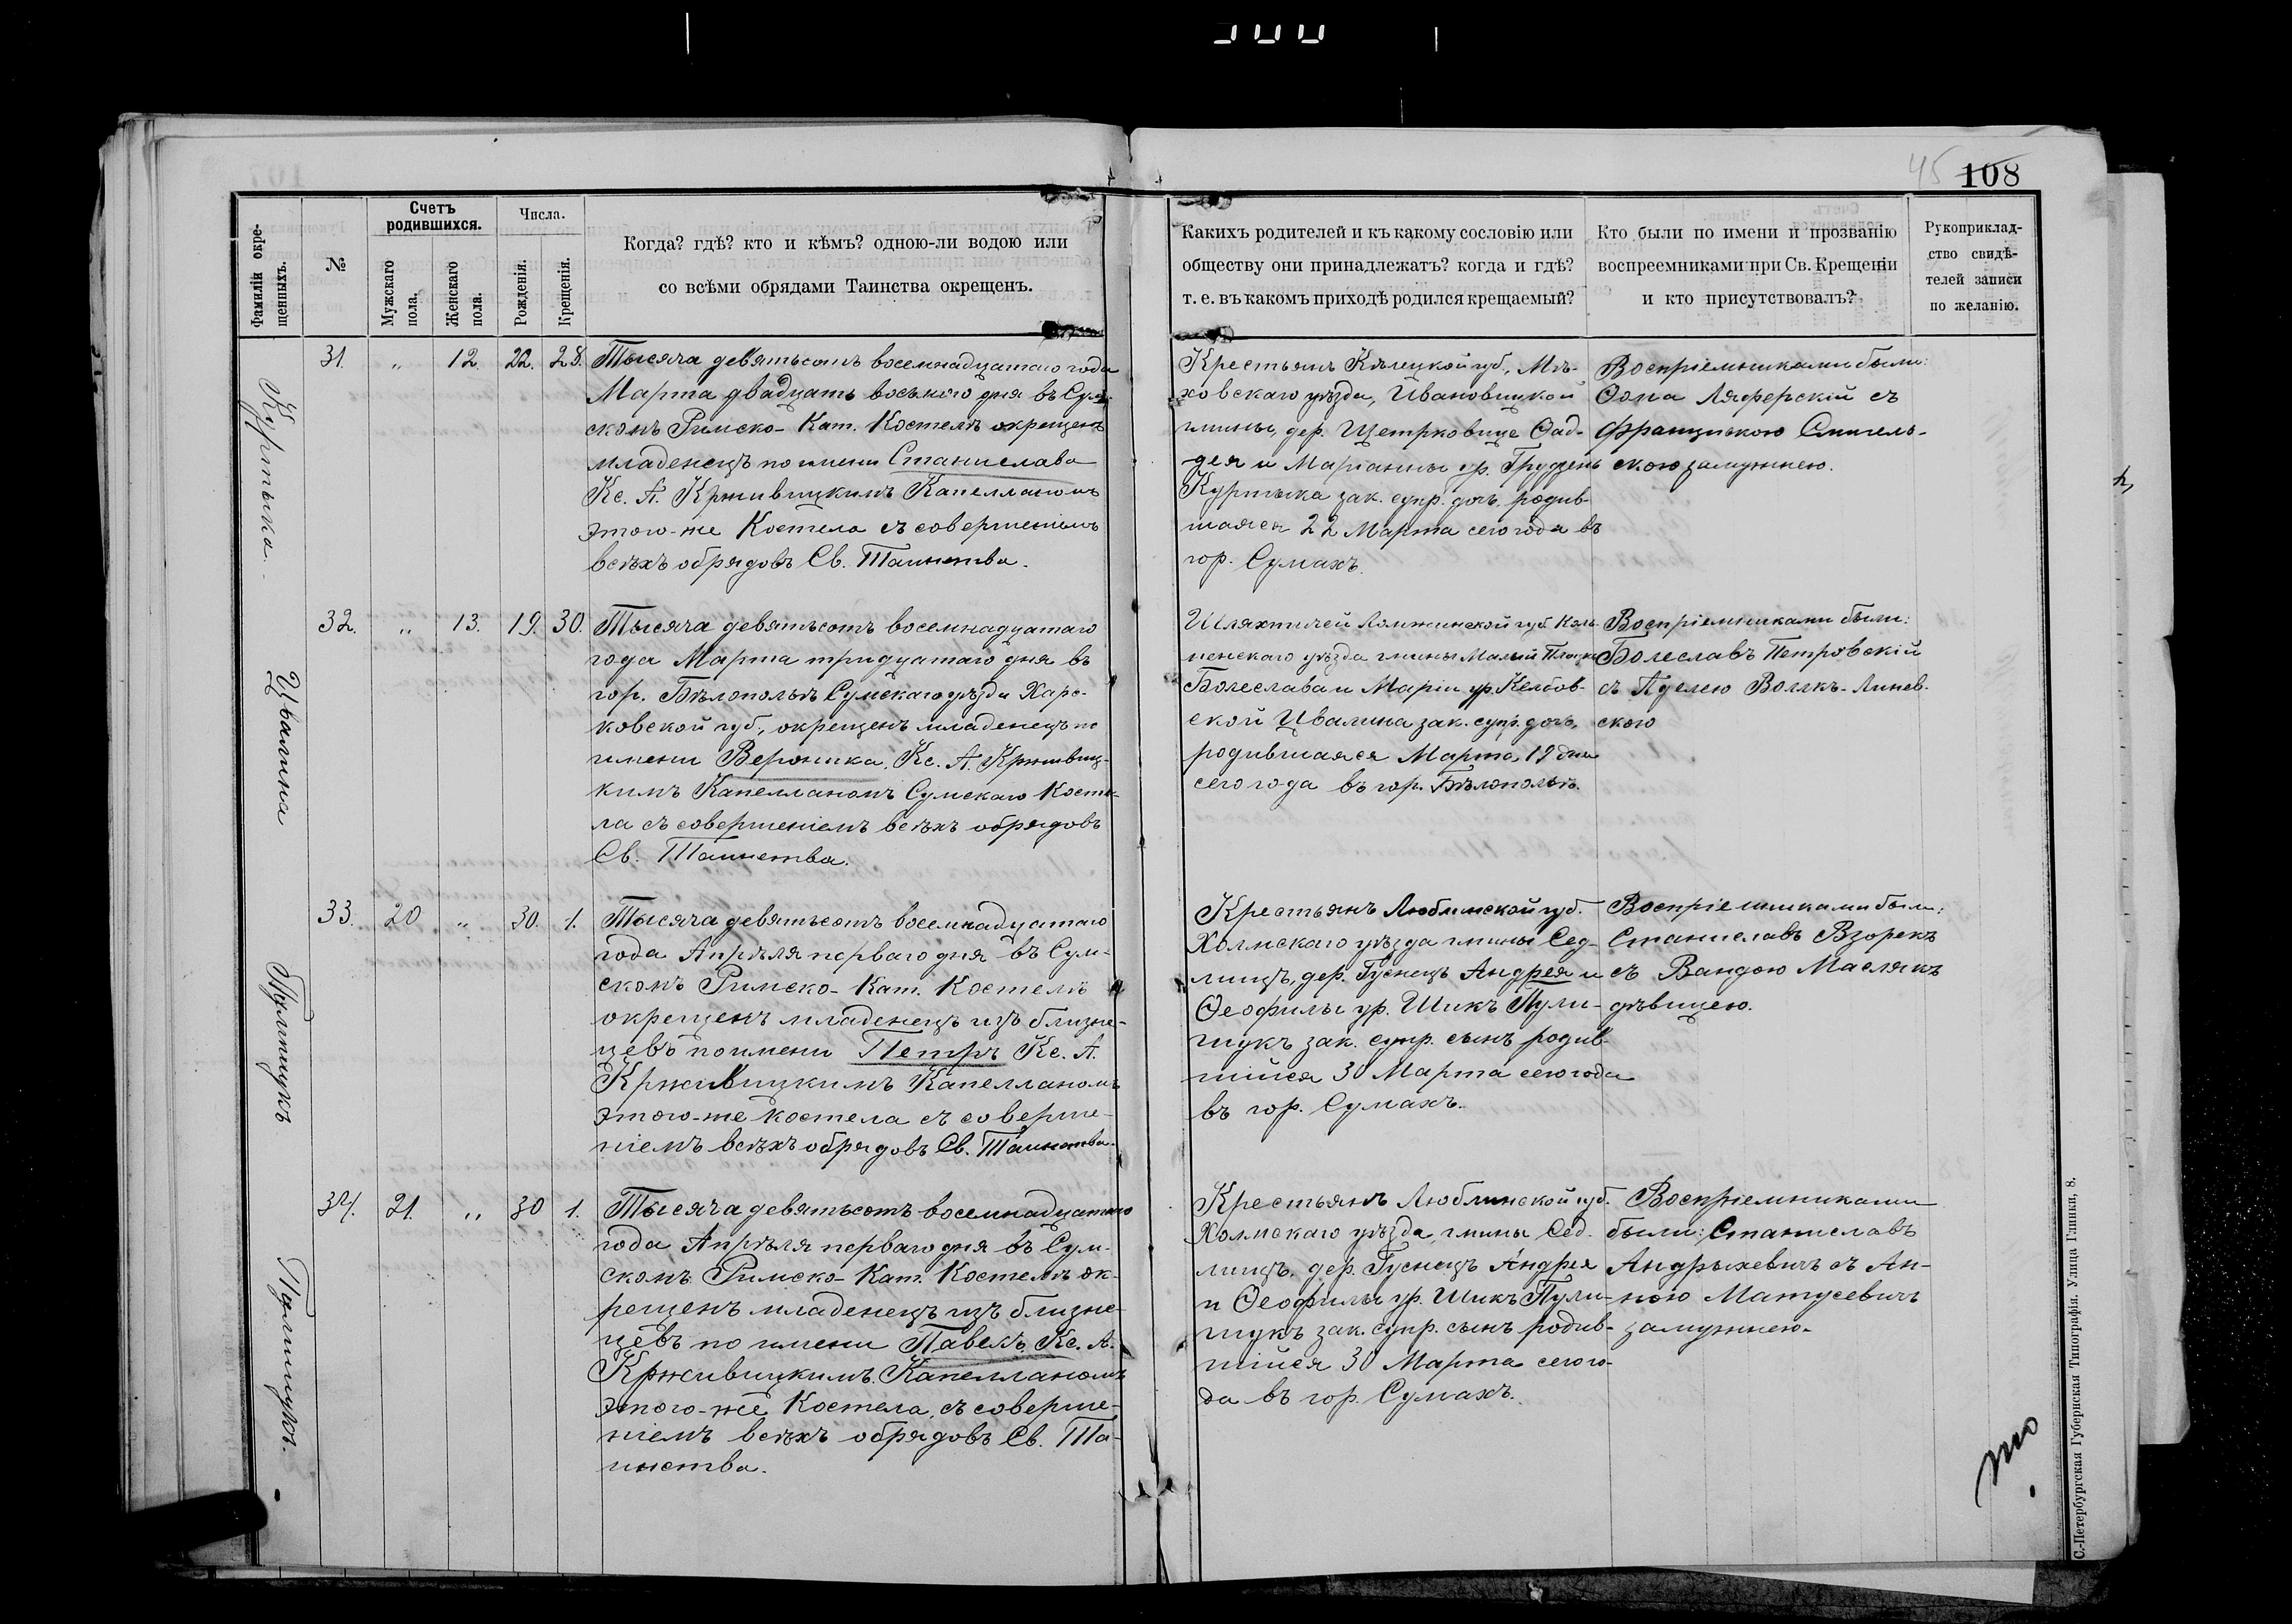 45 108
Фамиліи окре-
щенныхъ.
№
Счетъ
родившихся.
Мужскаго
пола.
Женскаго
пола.
Числа.
Рожденія.
Крещенія.
Когда? гдѣ? кто и кѣмъ? одною-ли водою или
со всѣми обрядами Таинства окрещенъ.
Какихъ родителей и къ какому сословію или
обществу они принадлежатъ? когда и гдѣ?
т. е. въ какомъ приходѣ родился крещаемый?
Кто были по имени и прозванію
воспреемниками при Св. Крещеніи
и кто присутствовалъ?
Рукоприклад-
ство свидѣ-
телей записи
по желанію.
Куртыка.
31. " 12. 22. 28.
Тысяча девятьсотъ восемнадцатаго года
Марта двадцать восьмого дня въ Сум-
скомъ Римско-Кат. Костелѣ окрещенъ
младенецъ по имени Станислава
Кс. А. Крживицкимъ Капелланомъ
этого-же Костела съ совершеніемъ
всѣхъ обрядовъ Св. Таинства.
Крестьянъ Кѣлецкой губ., Мѣ-
ховскаго уѣзда, Ивановицкой
гмины, дер. Щетрковице Фад-
дея и Маріанны ур. Грудзень
Куртыка зак. супр. дочь, родив-
шаяся 22 Марта сего года въ
гор. Сумахъ.
Воспріемниками были:
Ѳома Ляферскій съ
Францишкою Смигель-
скою замужнею.
Цвалина
32. " 13. 19. 30.
Тысяча девятьсотъ восемнадцатаго
года Марта тридцатаго дня въ
гор. Бѣлопольѣ Сумскаго уѣзда Харь-
ковской губ., окрещенъ младенецъ по
имени Вероника, Кс. А. Крживиц-
кимъ Капелланомъ Сумскаго Косте-
ла съ совершеніемъ всѣхъ обрядовъ
Св. Таинства.
Шляхтичей Ломжинской губ. Коль-
ненскаго уѣзда гмины Малый Плоцкъ
Болеслава и Маріи ур. Келбов-
ской Цвалина зак. супр. дочь,
родившаяся Марта 19 дня
сего года въ гор. Бѣлопольѣ.
Воспріемниками были:
Болеславъ Петровскій
съ Аделею Волкъ-Линев-
скою
Пулишукъ
33. 20 " 30. 1.
Тысяча девятьсотъ восемнадцатаго
года Апрѣля перваго дня въ Сум-
скомъ Римско-Кат. Костелѣ
окрещенъ младенецъ изъ близне-
цевъ по имени Петръ Кс. А.
Крживицкимъ Капелланомъ
этого-же костела съ соверше-
ніемъ всѣхъ обрядовъ Св. Таинства.
Крестьянъ Люблинской губ.
Холмскаго уѣзда гмины Сед-
лищъ, дер. Гуснецъ Андрея и
Ѳеофилы ур. Шикъ Пули-
шукъ зак. супр. сынъ родив-
шійся 30 Марта сего года
въ гор. Сумахъ.
Воспріемниками были:
Станиславъ Взорекъ
съ Вандою Маслякъ
дѣвицею.
Пулишукъ.
34. 21. " 30 1.
Тысяча девятьсотъ восемнадцатаго
года Апрѣля перваго дня въ Сум-
скомъ Римско-Кат. Костелѣ ок-
рещенъ младенецъ изъ близне-
цевъ по имени Павелъ Кс. А.
Крживицкимъ Капелланомъ
этого-же Костела, съ соверше-
ніемъ всѣхъ обрядовъ Св. Та-
инства.
Крестьянъ Люблинской губ.
Холмскаго уѣзда, гмины Сед-
лищъ, дер. Гуснецъ Андрея
и Ѳеофилы ур. Шикъ Пули-
шукъ зак. супр. сынъ родив-
шійся 30 Марта сего го-
да въ гор. Сумахъ.
Воспріемниками
были: Станиславъ
Андрыхевичъ съ Ан-
ною Матусевичъ
замужнею.
С.-Петербургская Губернская Типографія. Улица Глинки, 8.